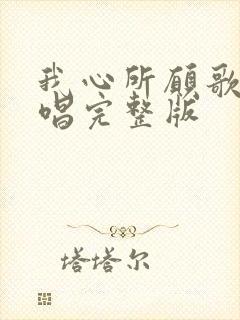 我心所愿歌
唱完整版
塔塔尔